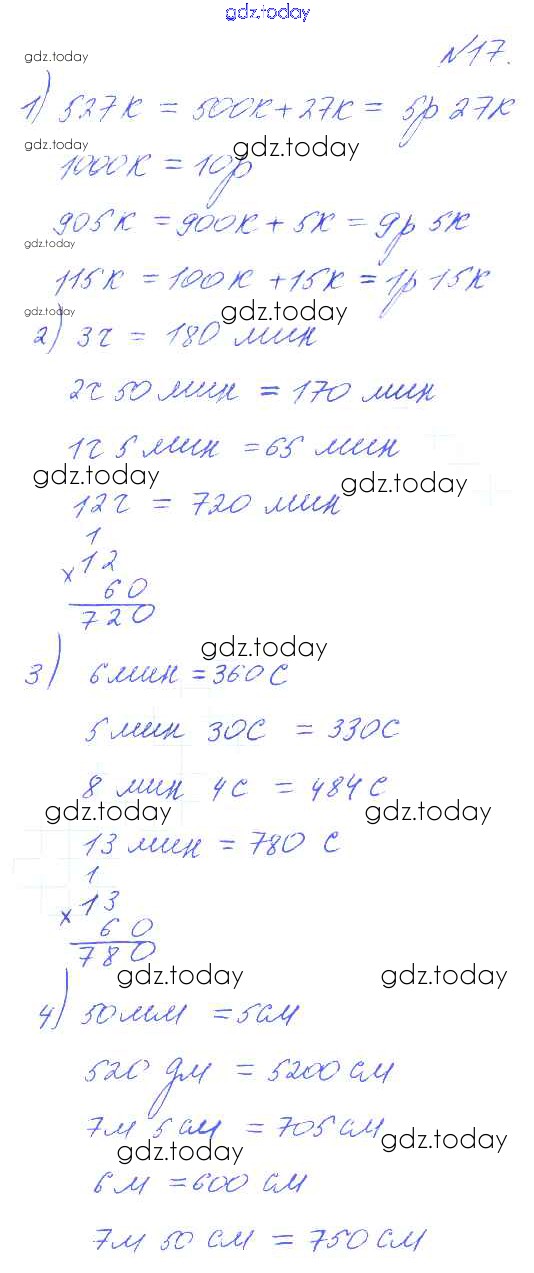 gdz.today
№17.
gdz.today
1) 527к = 500к + 27к = 5р 27к
gdz.today
gdz.today
1000к = 10р
905к = 900к + 5к = 9р 5к
gdz.today
115к = 100к + 15к = 1р 15к
gdz.today
gdz.today
2) 3ч = 180 мин
2ч 50 мин = 170 мин
1ч 5 мин = 65 мин
gdz.today gdz.today
12ч = 720 мин
1
× 12
60
720
gdz.today
3) 6 мин = 360 с
5 мин 30с = 330с
8 мин 4с = 484с
gdz.today gdz.today
13 мин = 780 с
1
× 13
60
780
gdz.today gdz.today
4) 50мм = 5см
520 дм = 5200 см
7м 5 см = 705 см
gdz.today gdz.today
6м = 600 см
7м 50 см = 750 см